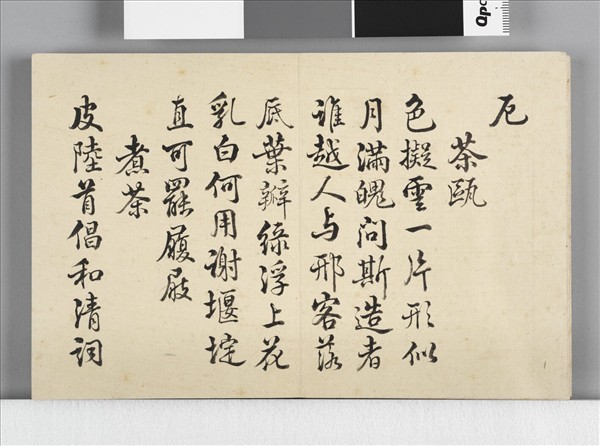 卮
茶甌
色擬雲一片形似
月滿魄问斯造者
誰越人与邢客落
底葉瓣綠浮上花
乳白何用谢堰埞
直可罷履屐
煮茶
皮陸首倡和清词